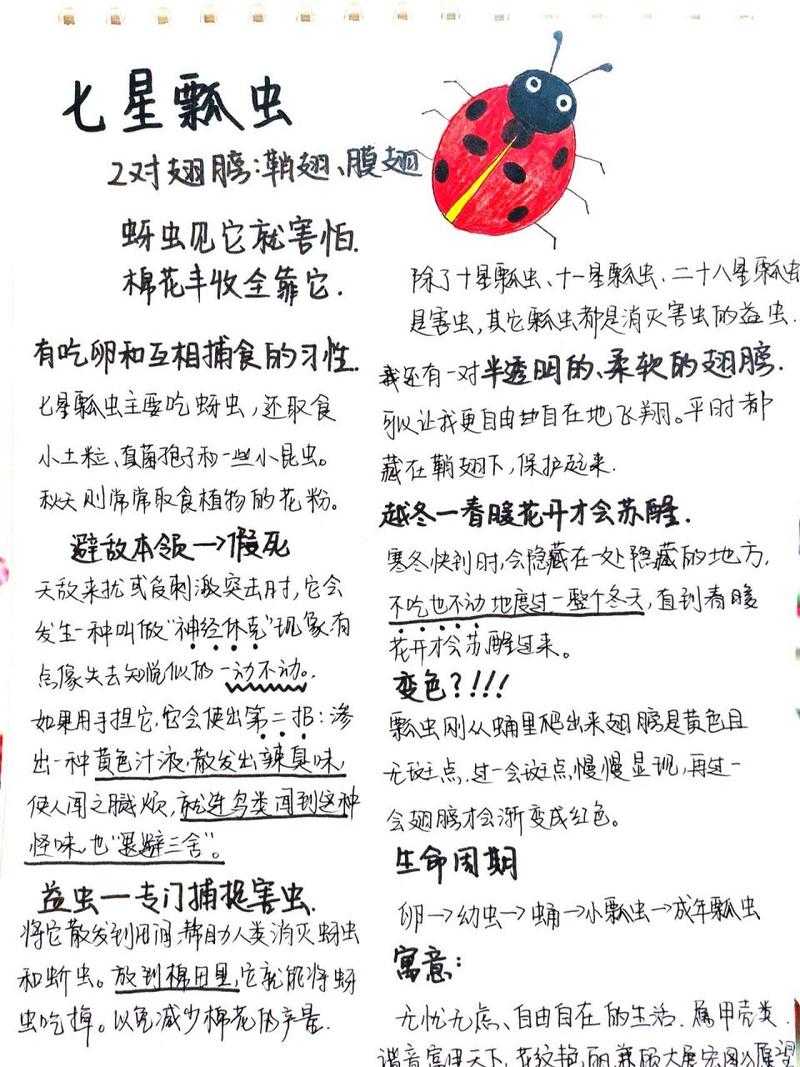 七星瓢虫
2对翅膀:鞘翅、膜翅
蚜虫见它就害怕.
棉花丰收全靠它.
有吃卵和互相捕食的习性.
七星瓢虫主要吃蚜虫,还取食
小土粒、真菌孢子和一些小昆虫。
秋天则常常取食植物的花粉。
避敌本领→假死
天敌来扰或反刺激突击时,它会
发生一种叫做"神经休克"现象,有
点像失去知觉似的一动不动。
如果用手捏它,它会使出第二招:渗
出一种黄色汁液,散发出辣臭味,
使人闻之腻烦,就连鸟类闻到这种
怪味,也"退避三舍"。
益虫—专门捕捉害虫.
将它散发到田间,帮助人类消灭蚜虫
和蚧虫。放到棉田里,它就能将蚜
虫吃掉。以免减少棉花的产量.
除了十星瓢虫、十一星瓢虫.二十八星瓢虫
是害虫,其它瓢虫都是消灭害虫的益虫.
我还有一对半透明的、柔软的翅膀.
可以让我更自由自在地飞翔。平时都
藏在鞘翅下,保护起来.
越冬—春暖花开才会苏醒.
寒冬快到时,会隐藏在一处隐藏的地方,
不吃也不动地度过一整个冬天,直到春暖
花开才会苏醒过来。
变色?!!!
瓢虫刚从蛹里爬出来翅膀是黄色且
无斑点.过一会斑点慢慢显现,再过一
会翅膀才会渐变成红色。
生命周期
卵→幼虫→蛹→小瓢虫→成年瓢虫
寓意:
无忧无虑、自由自在的生活.属甲壳类.
谐音富甲天下,花纹艳丽,兼顾大展宏图